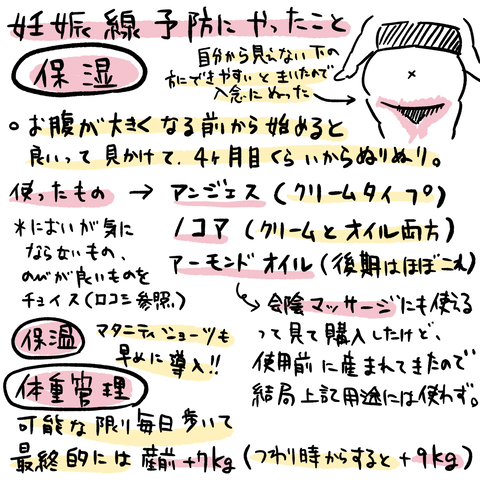 妊娠線予防にやったこと
保湿
自分から見えない下の
方にできやすいときいたので
入念にぬった
○お腹が大きくなる前から始めると
良いって見かけて、4ヶ月目くらいからぬりぬり。
使ったもの → アンジェス(クリームタイプ)
ノコア(クリームとオイル両方)
アーモンドオイル(後期はほぼこれ)
*においが気に
ならないもの、
のびが良いものを
チョイス(口コミ参照)
会陰マッサージにも使える
って見て購入したけど、
使用前に産まれてきたので
結局上記用途には使わず。
保温
マタニティショーツも
早めに導入!!
体重管理
可能な限り毎日歩いて
最終的には産前+7kg(つわり時からすると+9kg)